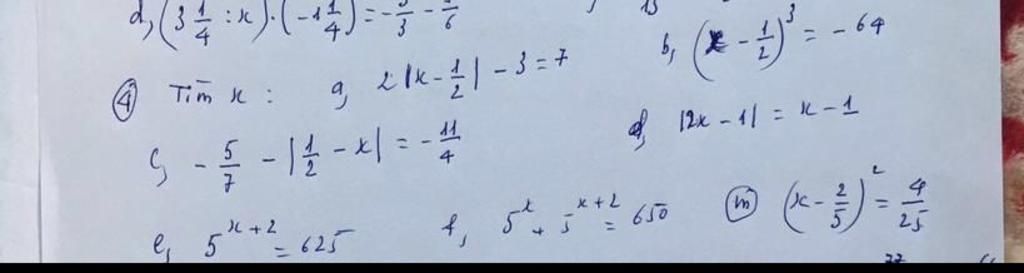 d, (3 1/4 : x) . (-1 1/4) = -5/3 - 5/6
④ Tìm x : a, 2|x - 1/2| - 3 = 7 b, (x - 1/2)³ = -64
c, -5/7 - |1/2 - x| = -11/4 d, |2x - 1| = x - 1
e, 5^(x+2) = 625 f, 5^x + 5^(x+2) = 650 ⓜ (x - 2/5)² = 4/25